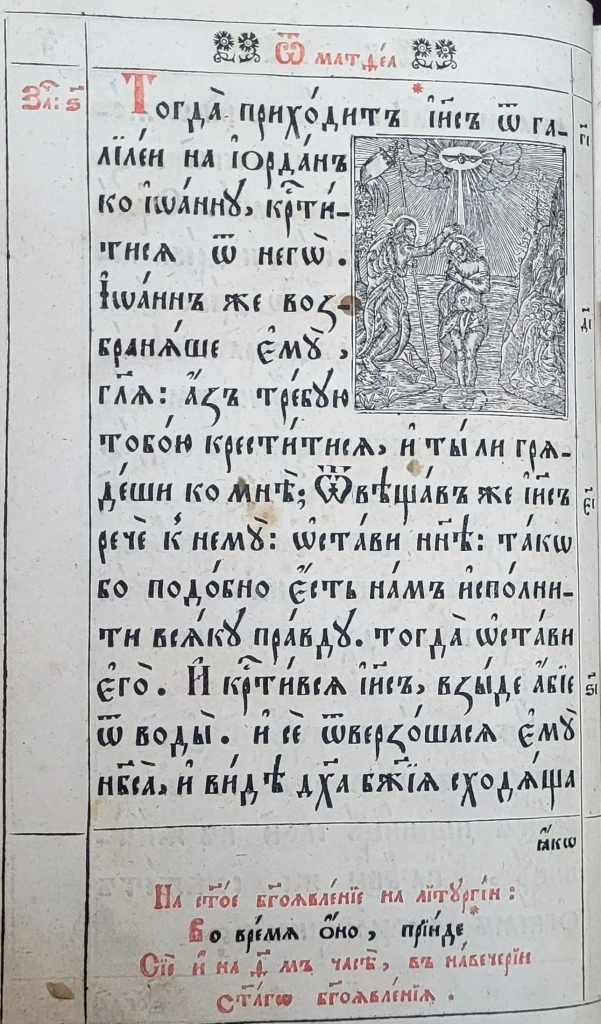 Ѿ матѳеа
За҇: ѕ҃
Тогда̀ прихо́дитъ * і҆и҃съ ѿ га-
лїле́и на і҆ѻрда́нъ
ко і҆ѡа́нну, кр҇ти́-
тися ѿ негѡ̀.
І҆ѡа́ннъ же воз-
браня́ше є҆мꙋ̀,
гл҃я: а҆́зъ тре́бую
тобо́ю крести́тися, и҆ ты́ ли гря-
де́ши ко мнѣ̀; Ѿвѣща́въ же і҆и҃съ
речѐ к̾ немꙋ̀: ѡ҆ста́ви нн҃ѣ: та́кѡ
бо подо́бно є҆́сть на́мъ и҆спо́лни-
ти вся́ку пра́вду. тогда̀ ѡ҆ста́ви
є҆го̀. И҆ кр҇ти́вся і҆и҃съ, взы́де а҆́бїе
ѿ воды̀. и҆ сѐ ѿверзо́шася є҆мꙋ̀
нб҃са̀, и҆ ви́дѣ дх҃а бж҃їя сходя́ща
гі
ді
еі
ѕі
ꙗ҆́кѡ
На ст҃о́е бг҃оявле́нїе на лїтꙋргі́и:
Во вре́мя ѻ҆́но, прїи́де *
Сїѐ и҆ на д҃ мъ часѣ̀, въ наве́черїи
ст҃а́гѡ бг҃оявле́нїя.